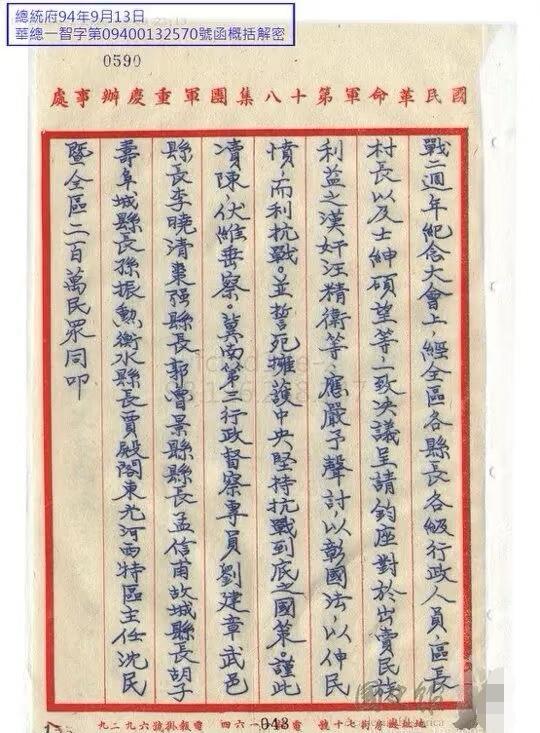 總統府94年9月13日
華總一智字第09400132570號函概括解密
0590
國民革命軍第十八集團軍重慶辦事處
戰二週年紀念大會上，經全區各縣長各級行政人員，區長
村長以及士紳碩望等，一致決議呈請鈞座對於出賣民族
利益之漢奸汪精衛等，應嚴予聲討以彰國法，以伸民
憤，而利抗戰。並誓死擁護中央堅持抗戰到底之國策。謹此
瀆陳，伏維垂察。冀南第三行政督察專員劉建章武邑
縣長李曉清棗强縣長郭曾景縣縣長孟信甫故城縣長胡子
壽阜城縣長孫振勲衡水縣長賈殿閣東光河西特區主任沈民
暨全區二百萬民眾同叩
043
國史館